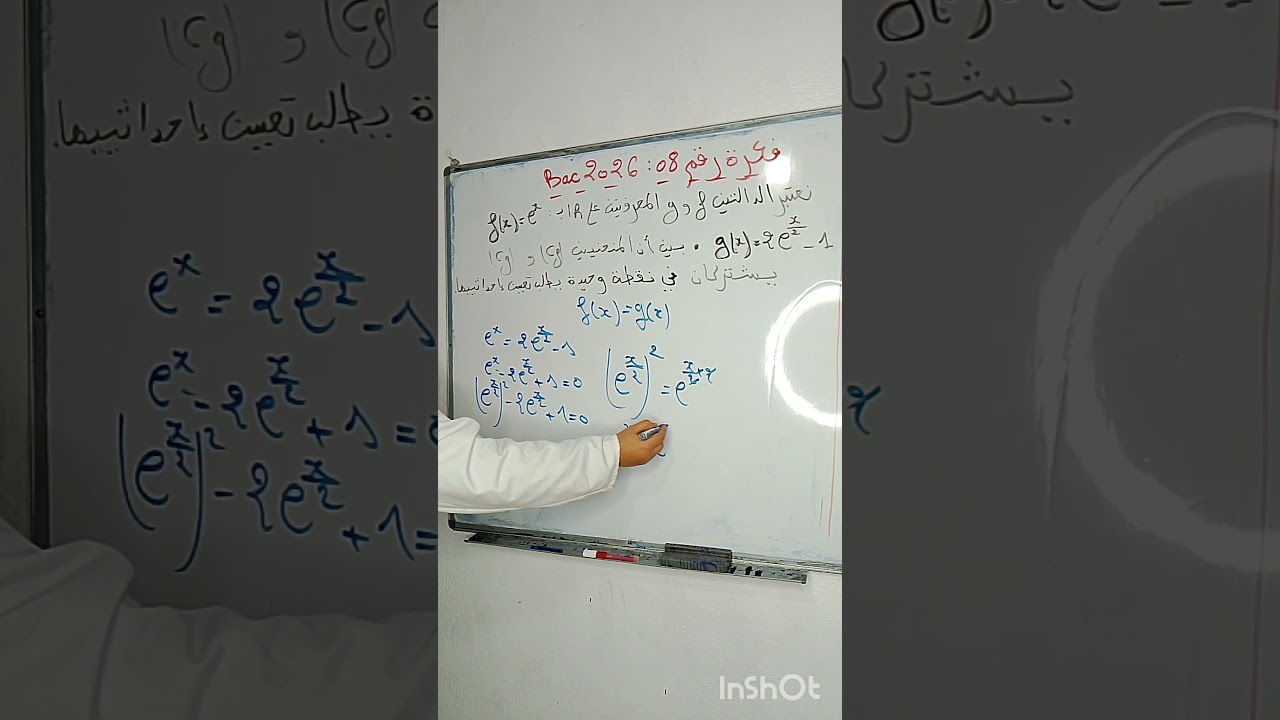 فكرة رقم 08 : Bac 2026
نعتبر الدالتين f و g المعرفتين على R بـ: f(x)=e^x
g(x)=2e^{x/2}-1 . بين أن المنحنيين (Cf) و (Cg)
يشتركان في نقطة وحيدة يطلب تعيين إحداثييها.
f(x)=g(x)
e^x = 2e^{x/2}-1
e^x - 2e^{x/2}+1=0
(e^{x/2})^2 - 2e^{x/2}+1=0
(e^{x/2})^2 = e^{x/2×2}
InShOt